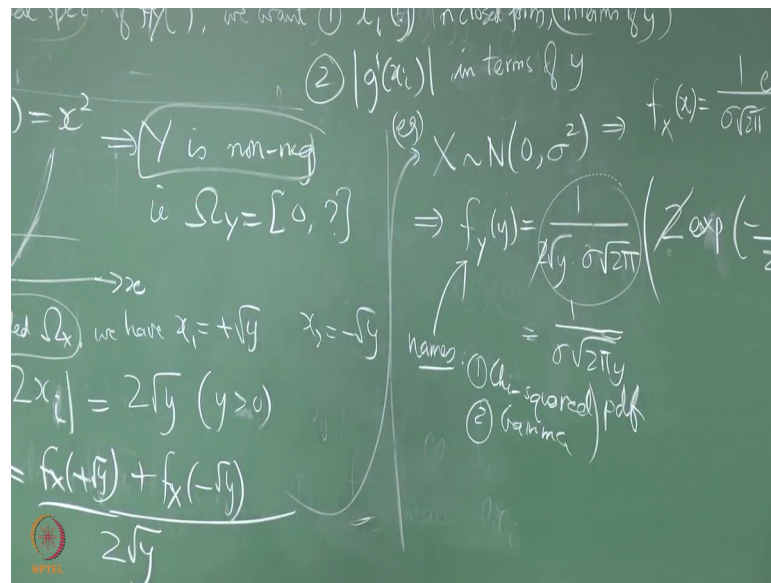 we want ① x_i(y) in closed form, (in terms of y)
② |g'(x_i)| in terms of y
) = x²
⇒ Y is non-neg
ie Ω_Y = [0, ?]
→x
Ω_X, we have x₁ = +√y x₂ = -√y
2x_i| = 2√y (y>0)
= f_X(+√y) + f_X(-√y)
2√y
(eg)
X ~ N(0, σ²) ⇒ f_X(x) = 1 e
σ√2π
⇒ f_Y(y) = 1 / 2√y · σ√2π (2 exp(-
2
= 1
σ√2πy
names: ① Chi-squared pdf
② Gamma
NPTEL